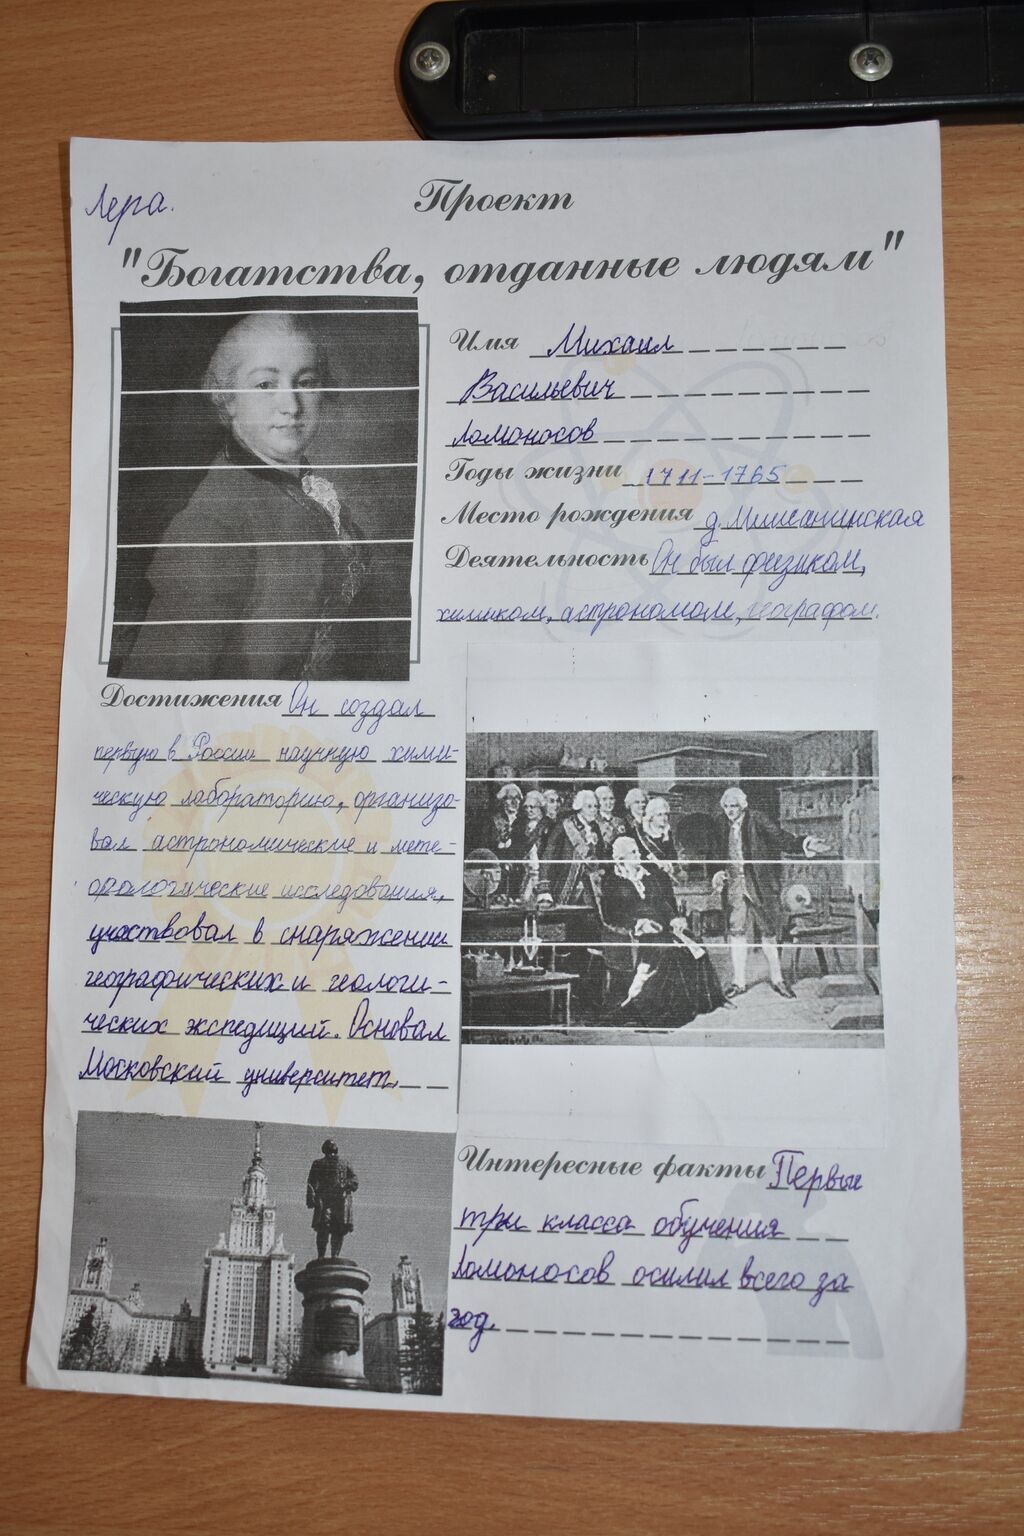 Лера.
Проект
"Богатства, отданные людям"
Имя Михаил
Васильевич
Ломоносов
Годы жизни 1711-1765
Место рождения д. Мишанинская
Деятельность Он был физиком,
химиком, астрономом, географом.
Достижения Он создал
первую в России научную хими-
ческую лабораторию, организо-
вал астрономические и мете-
орологические исследования,
участвовал в снаряжении
географических и геологи-
ческих экспедиций. Основал
Московский университет.
Интересные факты Первые
три класса обучения
Ломоносов осилил всего за
год.